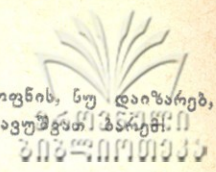 ოფნის, ნუ დაიზარებ,
ავუშვათ ბარემ.
ეროვნული
ბიბლიოთეკა